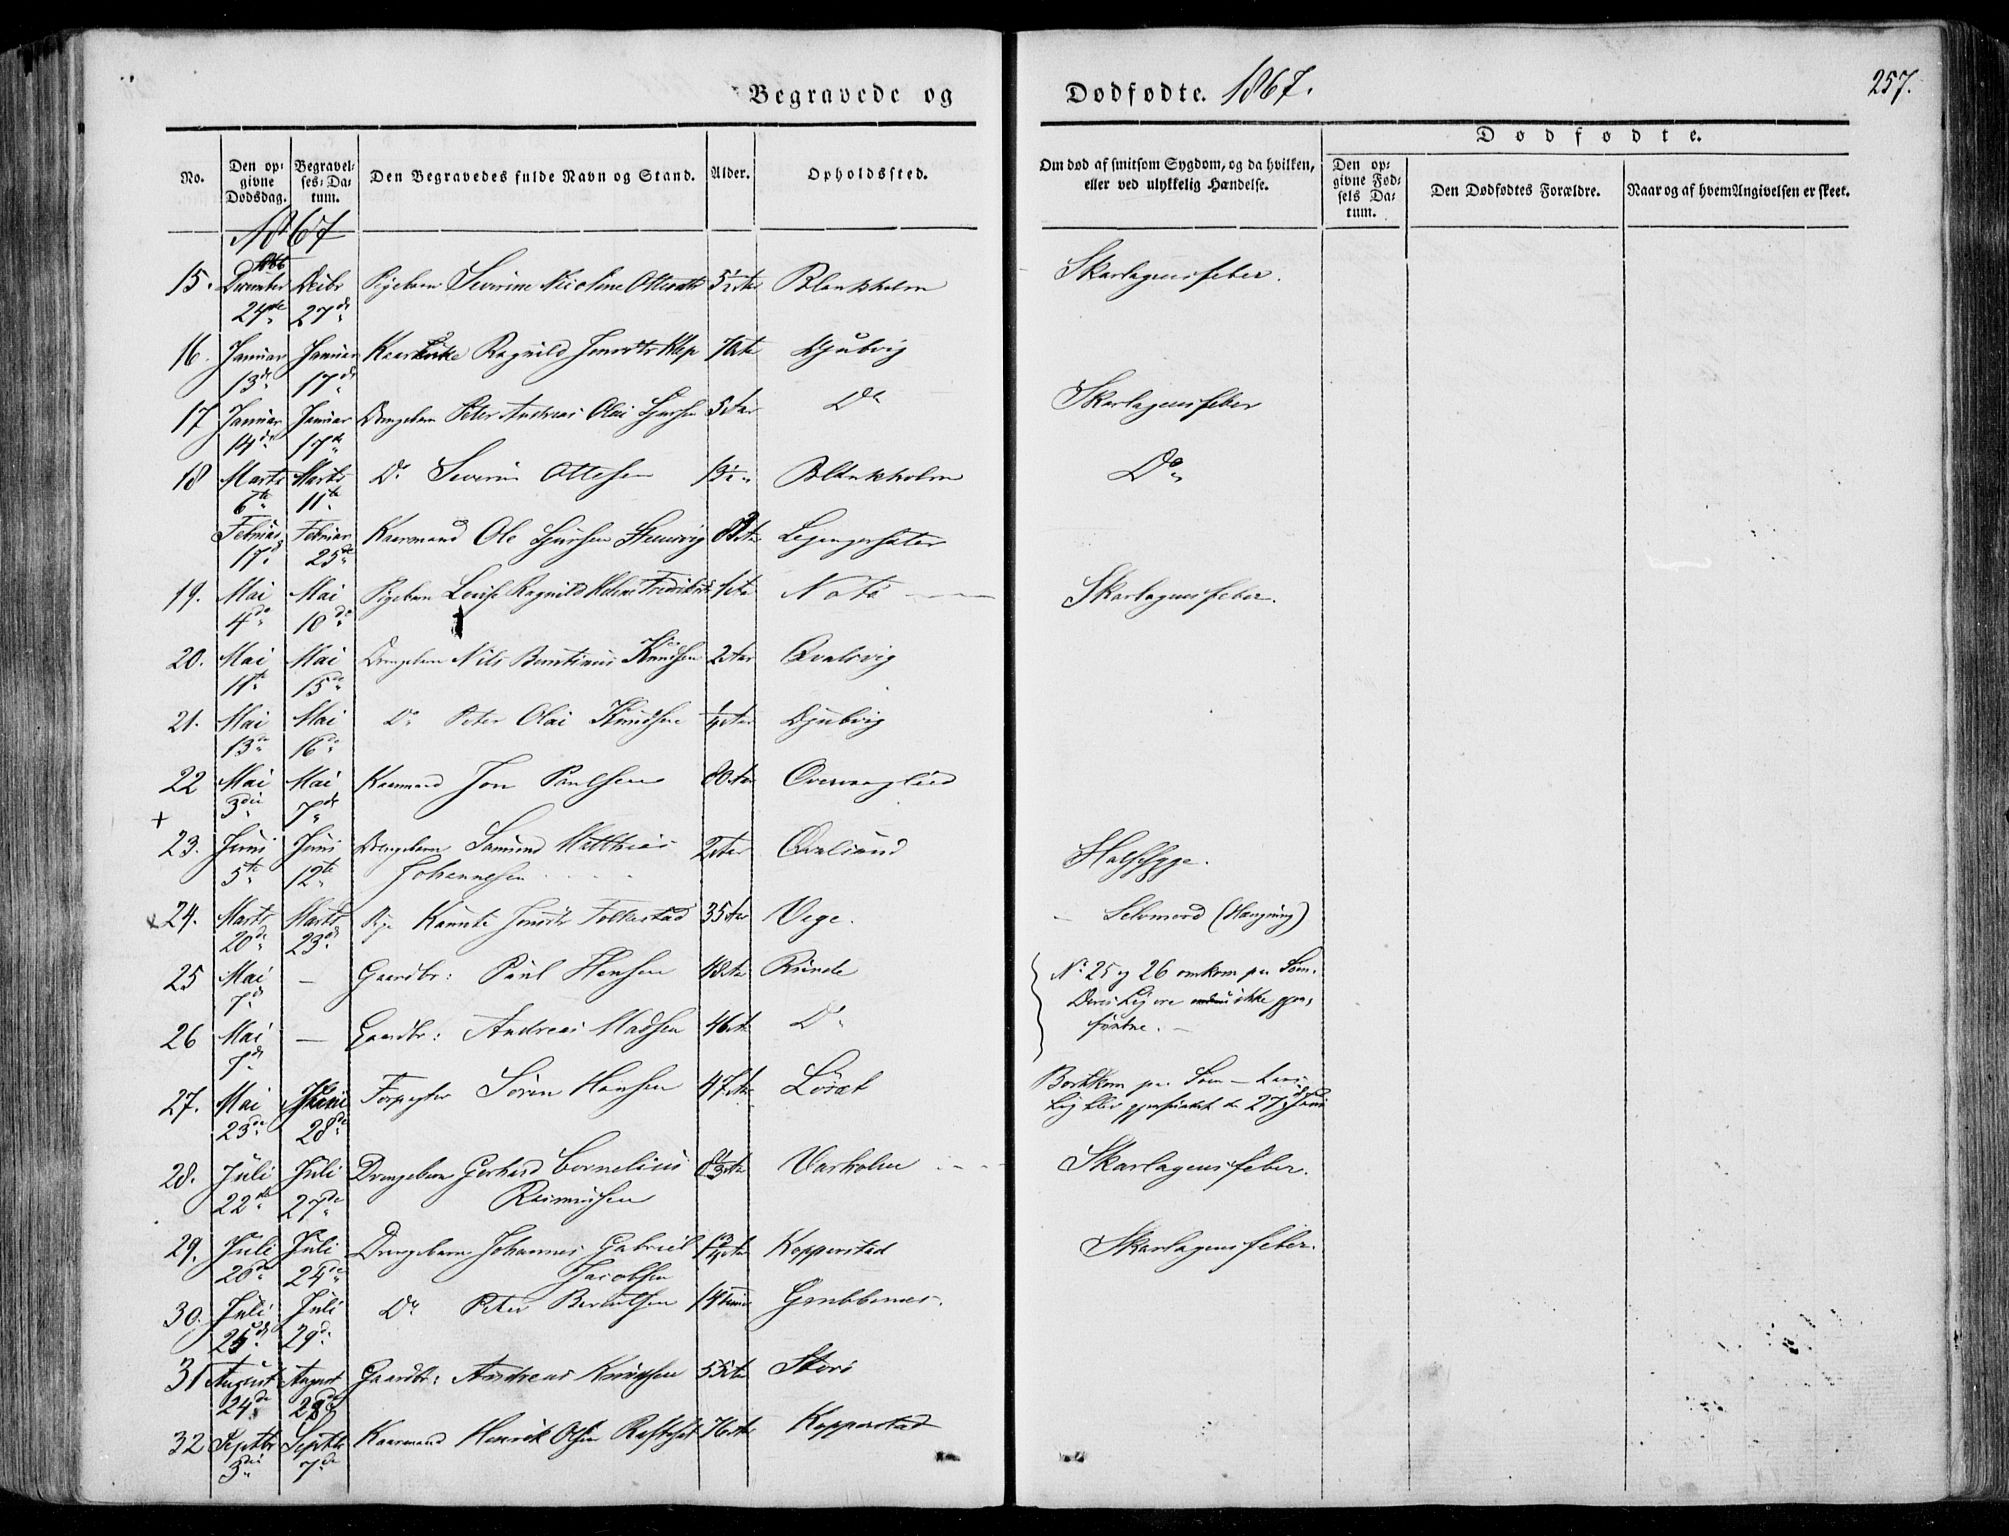 Begravede og Dødfødte. 1867. 257.
No. Den opgivne Dødsdag. Begravelses-Datum. Den Begravedes fulde Navn og Stand. Alder. Opholdssted. Om død af smitsom Sygdom, og da hvilken, eller ved ulykkelig Hændelse.
Dødfødte.
Den opgivne Fødsels Datum. Den Dødfødtes Forældre. Naar og af hvem Angivelsen er skeet.
1867
15. December 24de Decbr 27de Pigebarn Severine Nicoline 5½ Aar Blankholm Skarlagensfeber.
16. Januar 13de Januar 17de Ragnild 70 Aar Djubvig
17 Januar 14de Januar 17de Drengebarn Peter Andreas Olai 5 Aar Do Skarlagensfeber
18 Marts 6te Marts 11te Do Severin Ottesen 13½ " Blankholm Do
Februar 17de Februar 25de Kaarmand Ole
19. Mai 4de Mai 10de Pigebarn Ragnild 1 Aar Notø Skarlagensfeber.
20. Mai 11te Mai 15de Drengebarn Nils Knudsen 2 Aar Qvalsvig
21. Mai 13de Mai 16de Do Peter Olai Knudsen ¼ Aar Djubvig
22 Mai 3die Mai 7de Kaarmand Jon Paulsen 80 Aar
+
23. Juni 5te Juni 12te Drengebarn Samund Matthias Johannesen 2 Aar Qvalsund Halssyge.
x 24. Marts 20de Marts 23de Pige 35 Aar Vege. Selvmord (Hængning)
25 Mai 7de — Gaardbr: Paul Hansen 48 Aar Runde No 25 og 26 omkom paa Søen. Deres Lig ere ikke gjenfundne. —
26 Mai 7de — Gaardbr: Andreas Madsen 46 Aar Do
27. Mai 23de Juni 28de Søren Hansen 47 Aar Løset Bortkom paa Søen — hans Lig blev gjenfundet den 27de Juni
28. Juli 22de Juli 27de Drengebarn Gerhard Cornelius Rasmussen Aar Varholm Skarlagensfeber.
29. Juli 20de Juli 24de Drengebarn Johannes Gabriel Jacobsen Aar Kopperstad Skarlagensfeber.
30. Juli Juli 29de Do Peter Berntsen 14 Grubbenes.
31 August 24de August Gaardbr: Andreas Knudsen 55 Aar Storø
32 Septbr 3die Septbr 7de Kaarmand Henrik Olsen 76 Aar Kopperstad